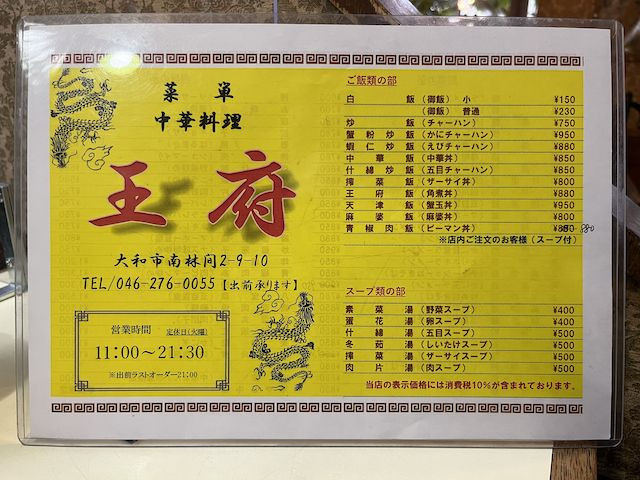 菜単
中華料理
王府
大和市南林間2-9-10
TEL/046-276-0055【出前承ります】
営業時間 定休日(火曜)
11:00〜21:30
※出前ラストオーダー21:00
ご飯類の部
白飯(御飯) 小 ¥150
(御飯) 普通 ¥230
炒飯(チャーハン) ¥750
蟹粉炒飯(かにチャーハン) ¥950
蝦仁炒飯(えびチャーハン) ¥880
中華飯(中華丼) ¥850
什綿炒飯(五目チャーハン) ¥850
搾菜飯(ザーサイ丼) ¥800
王府飯(角煮丼) ¥880
天津飯(蟹玉丼) ¥950
麻婆飯(麻婆丼) ¥800
青椒肉飯(ピーマン丼) 880
※店内ご注文のお客様(スープ付)
スープ類の部
素菜湯(野菜スープ) ¥400
蛋花湯(卵スープ) ¥400
什綿湯(五目スープ) ¥500
冬茹湯(しいたけスープ) ¥500
搾菜湯(ザーサイスープ) ¥500
肉片湯(肉スープ) ¥500
当店の表示価格には消費税10%が含まれております。